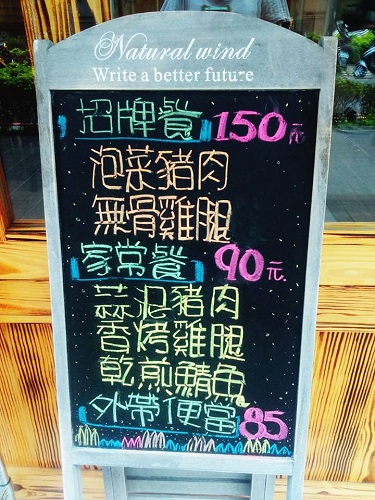 Natural wind
Write a better future
招牌餐 150元
泡菜豬肉
無骨雞腿
家常餐 90元
蒜泥豬肉
香烤雞腿
乾煎鯖魚
外帶便當 85